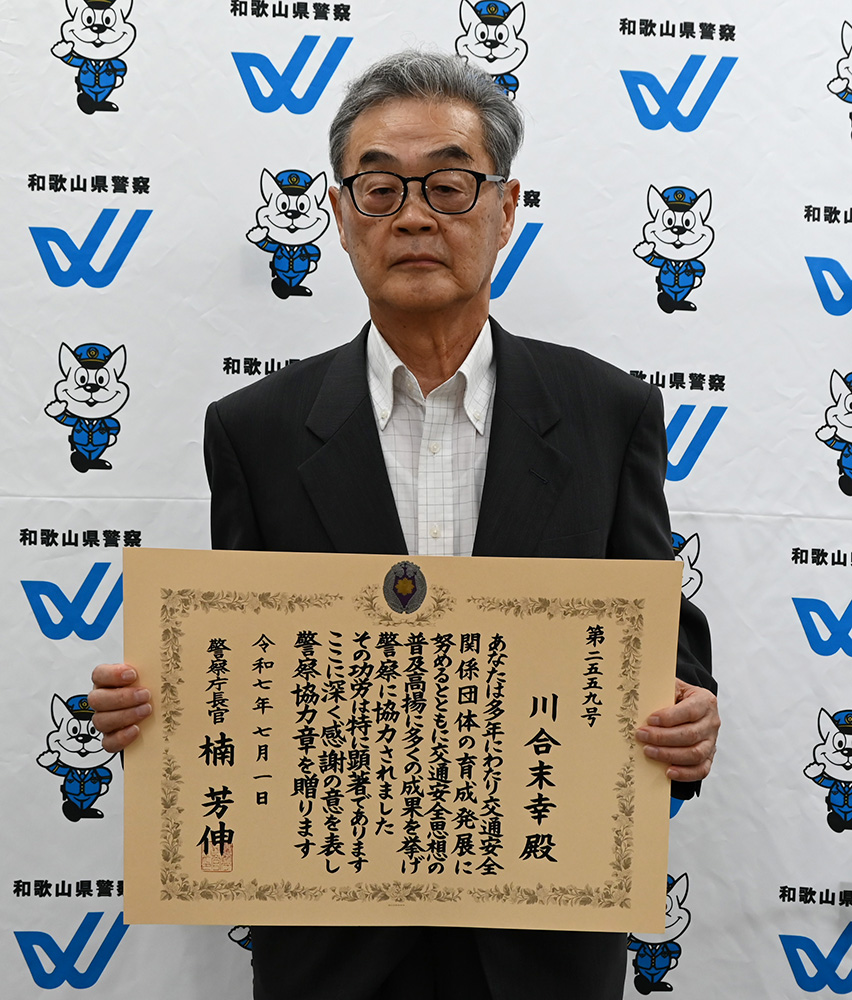 和歌山県警察
和歌山県警察
和歌山県警察
和歌山県警
和歌山県
和歌山県警察
和歌山県警察
和歌山県警察
和歌山県警察
和歌山県警
第二五五九号
川合末幸殿
あなたは多年にわたり交通安全
関係団体の育成発展に
努めるとともに交通安全思想の
普及高揚に多くの成果を挙げ
警察に協力されました
その功労は特に顕著であります
ここに深く感謝の意を表し
警察協力章を贈ります
令和七年七月一日
警察庁長官 楠芳伸
和歌山県警察
和歌山県警察